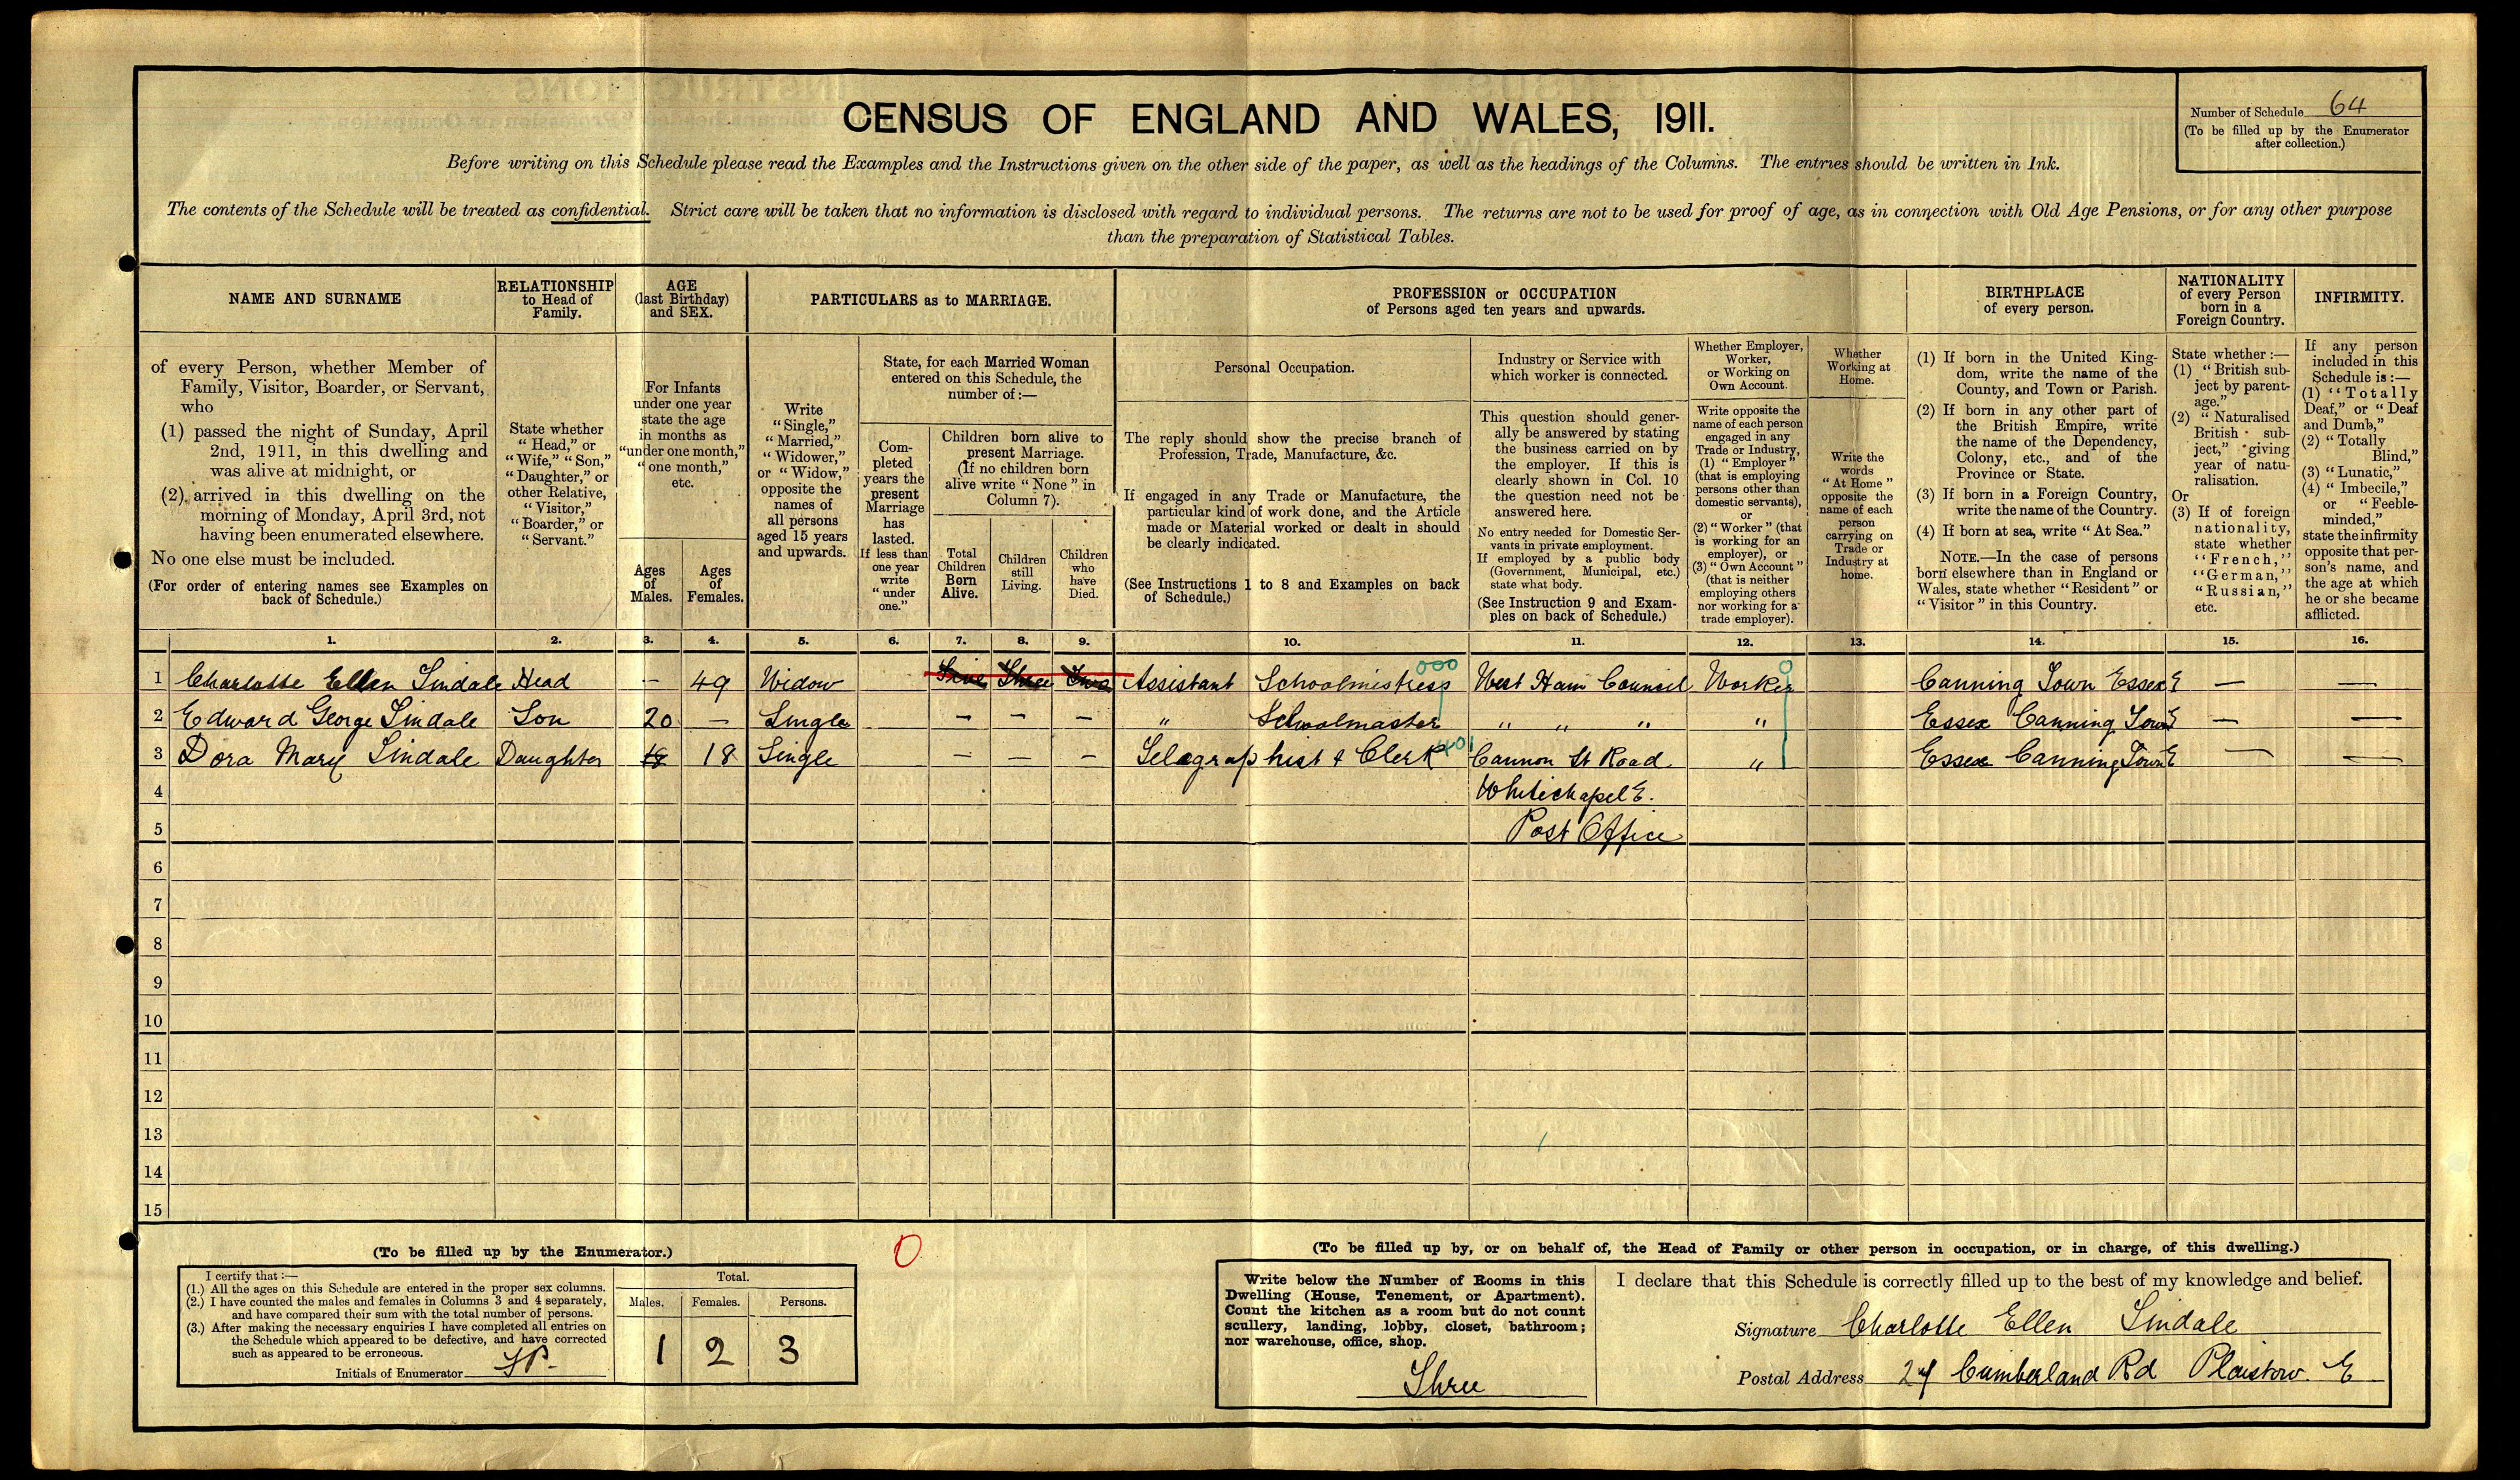 CENSUS OF ENGLAND AND WALES, 1911.
Number of Schedule 64
(To be filled up by the Enumerator
after collection.)
Before writing on this Schedule please read the Examples and the Instructions given on the other side of the paper, as well as the headings of the Columns. The entries should be written in Ink.
The contents of the Schedule will be treated as confidential. Strict care will be taken that no information is disclosed with regard to individual persons. The returns are not to be used for proof of age, as in connection with Old Age Pensions, or for any other purpose
than the preparation of Statistical Tables.
NAME AND SURNAME
of every Person, whether Member of
Family, Visitor, Boarder, or Servant,
who
(1) passed the night of Sunday, April
2nd, 1911, in this dwelling and
was alive at midnight, or
(2) arrived in this dwelling on the
morning of Monday, April 3rd, not
having been enumerated elsewhere.
No one else must be included.
(For order of entering names see Examples on
back of Schedule.)
RELATIONSHIP
to Head of
Family.
State whether
"Head," or
"Wife," "Son,"
"Daughter," or
other Relative,
"Visitor,"
"Boarder," or
"Servant."
AGE
(last Birthday)
and SEX.
For Infants
under one year
state the age
in months as
"under one month,"
"one month,"
etc.
Ages
of
Males.
Ages
of
Females.
PARTICULARS as to MARRIAGE.
Write
"Single,"
"Married,"
"Widower,"
or "Widow,"
opposite the
names of
all persons
aged 15 years
and upwards.
State, for each Married Woman
entered on this Schedule, the
number of:—
Com-
pleted
years the
present
Marriage
has
lasted.
If less than
one year
write
"under
one."
Children born alive to
present Marriage.
(If no children born
alive write "None" in
Column 7).
Total
Children
Born
Alive.
Children
still
Living.
Children
who
have
Died.
PROFESSION or OCCUPATION
of Persons aged ten years and upwards.
Personal Occupation.
The reply should show the precise branch of
Profession, Trade, Manufacture, &c.
If engaged in any Trade or Manufacture, the
particular kind of work done, and the Article
made or Material worked or dealt in should
be clearly indicated.
(See Instructions 1 to 8 and Examples on back
of Schedule.)
Industry or Service with
which worker is connected.
This question should gener-
ally be answered by stating
the business carried on by
the employer. If this is
clearly shown in Col. 10
the question need not be
answered here.
No entry needed for Domestic Ser-
vants in private employment.
If employed by a public body
(Government, Municipal, etc.)
state what body.
(See Instruction 9 and Exam-
ples on back of Schedule.)
Whether Employer,
Worker,
or Working on
Own Account.
Write opposite the
name of each person
engaged in any
Trade or Industry,
(1) "Employer"
(that is employing
persons other than
domestic servants),
or
(2) "Worker" (that
is working for an
employer), or
(3) "Own Account"
(that is neither
employing others
nor working for a
trade employer).
Whether
Working at
Home.
Write the
words
"At Home"
opposite the
name of each
person
carrying on
Trade or
Industry at
home.
BIRTHPLACE
of every person.
(1) If born in the United King-
dom, write the name of the
County, and Town or Parish.
(2) If born in any other part of
the British Empire, write
the name of the Dependency,
Colony, etc., and of the
Province or State.
(3) If born in a Foreign Country,
write the name of the Country.
(4) If born at sea, write "At Sea."
NOTE.—In the case of persons
born elsewhere than in England or
Wales, state whether "Resident" or
"Visitor" in this Country.
NATIONALITY
of every Person
born in a
Foreign Country.
State whether:—
(1) "British sub-
ject by parent-
age."
(2) "Naturalised
British sub-
ject," giving
year of natu-
ralisation.
Or
(3) If of foreign
nationality,
state whether
"French,"
"German,"
"Russian,"
etc.
INFIRMITY.
If any person
included in this
Schedule is:—
(1) "Totally
Deaf," or "Deaf
and Dumb,"
(2) "Totally
Blind,"
(3) "Lunatic,"
(4) "Imbecile,"
or "Feeble-
minded,"
state the infirmity
opposite that per-
son's name, and
the age at which
he or she became
afflicted.
1. 2. 3. 4. 5. 6. 7. 8. 9. 10. 11. 12. 13. 14. 15. 16.
1 Charlotte Ellen Tindale Head — 49 Widow Five Three Two Assistant Schoolmistress 000 West Ham Council Worker 0 Canning Town Essex E — —
2 Edward George Tindale Son 20 — Single — — — " Schoolmaster " " " " Essex Canning Town E — —
3 Dora Mary Tindale Daughter 18 18 Single — — — Telegraphist & Clerk 401 Cannon St Road " Essex Canning Town E — —
4 Whitechapel E.
5 Post Office
6
7
8
9
10
11
12
13
14
15
(To be filled up by the Enumerator.)
I certify that:—
(1.) All the ages on this Schedule are entered in the proper sex columns.
(2.) I have counted the males and females in Columns 3 and 4 separately,
and have compared their sum with the total number of persons.
(3.) After making the necessary enquiries I have completed all entries on
the Schedule which appeared to be defective, and have corrected
such as appeared to be erroneous.
Initials of Enumerator
Total.
Males. Females. Persons.
1 2 3
0
(To be filled up by, or on behalf of, the Head of Family or other person in occupation, or in charge, of this dwelling.)
Write below the Number of Rooms in this
Dwelling (House, Tenement, or Apartment).
Count the kitchen as a room but do not count
scullery, landing, lobby, closet, bathroom;
nor warehouse, office, shop.
Three
I declare that this Schedule is correctly filled up to the best of my knowledge and belief.
Signature Charlotte Ellen Tindale
Postal Address Cumberland Rd Plaistow. E